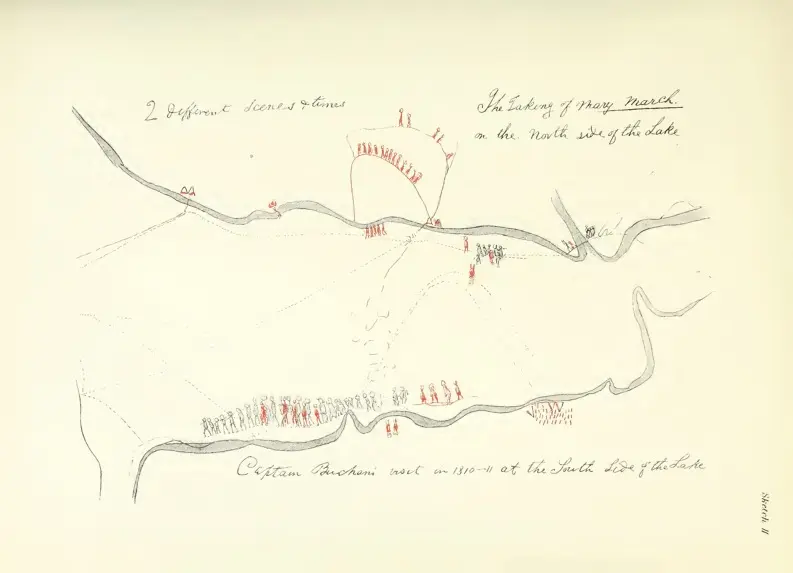 2 different Scenes & times
The Taking of Mary March.
on the North side of the Lake
Captain Buchans visit in 1810-11 at the South Side of the Lake
Sketch II